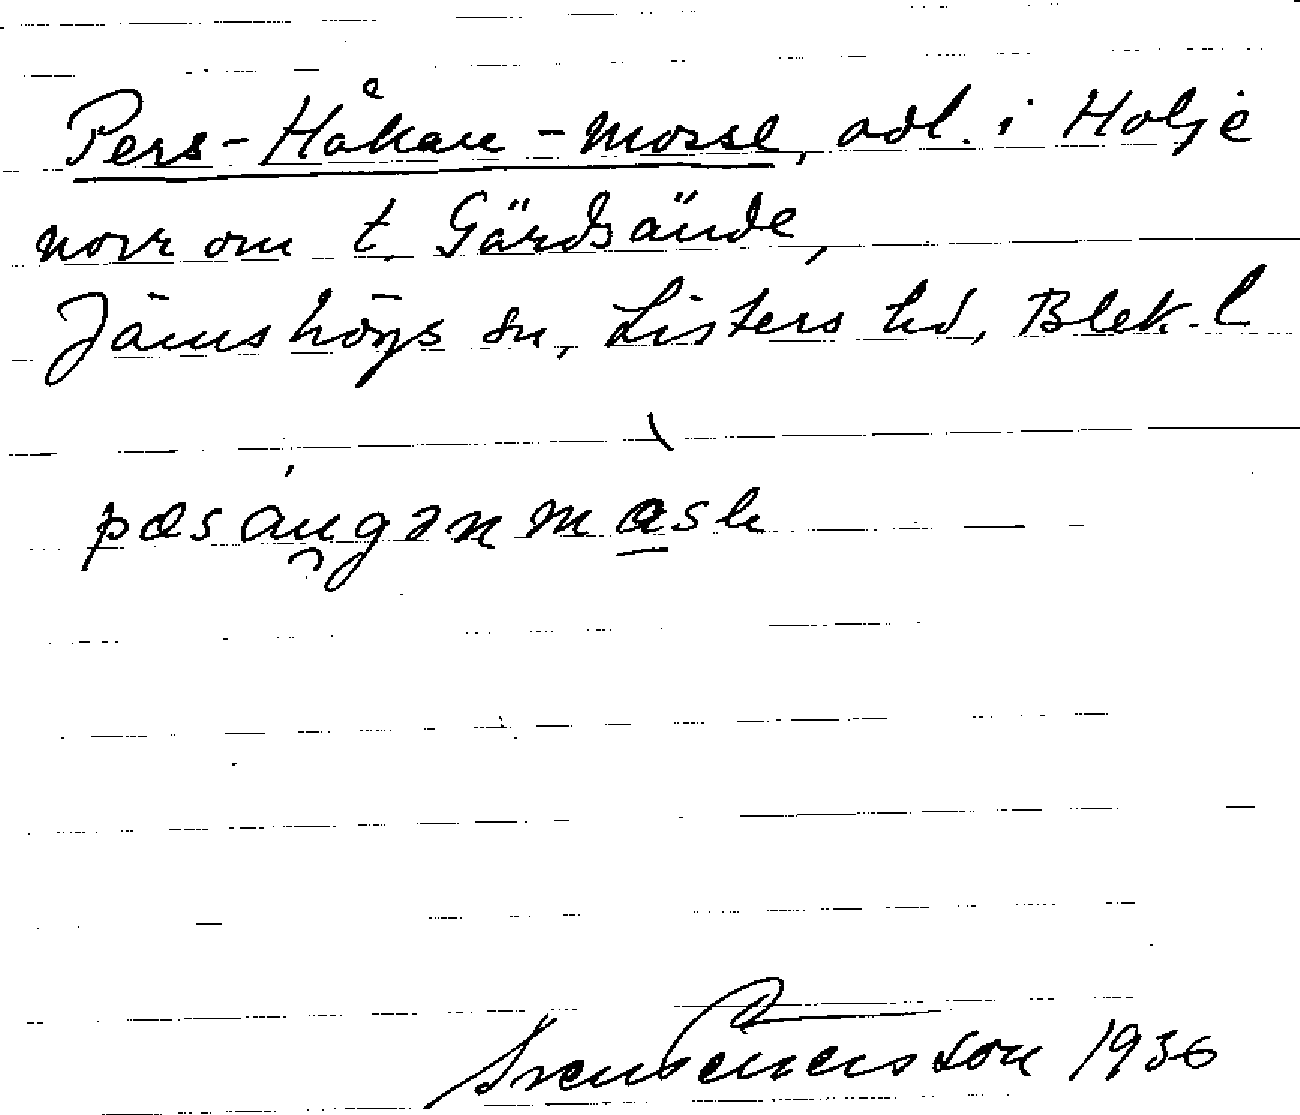 Pers-Håkan-Mosse, odl. i Holje
norr om t. Gärdsände,
Jämshögs sn, Listers hd, Blek. l
Sven Benson 1936